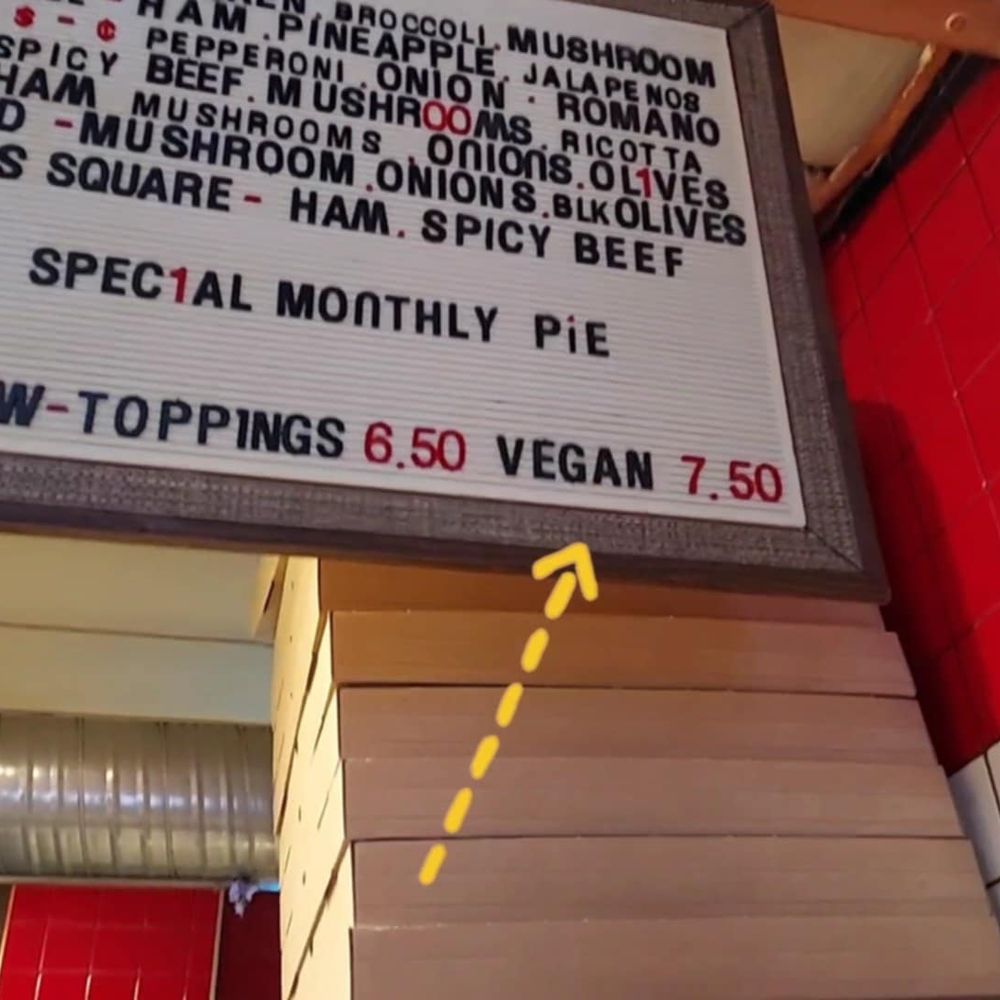 BROCCOLI.MUSHROOM
HAM.PINEAPPLE.JALAPENOS
PEPPERONI.ONION.ROMANO
SPICY BEEF.MUSHROOMS.RICOTTA
HAM MUSHROOMS.ONIONS.OL1VES
D-MUSHROOM.ONIONS.BLK OLIVES
S SQUARE-HAM.SPICY BEEF
SPEC1AL MONTHLY PiE
W-TOPPINGS 6.50 VEGAN 7.50